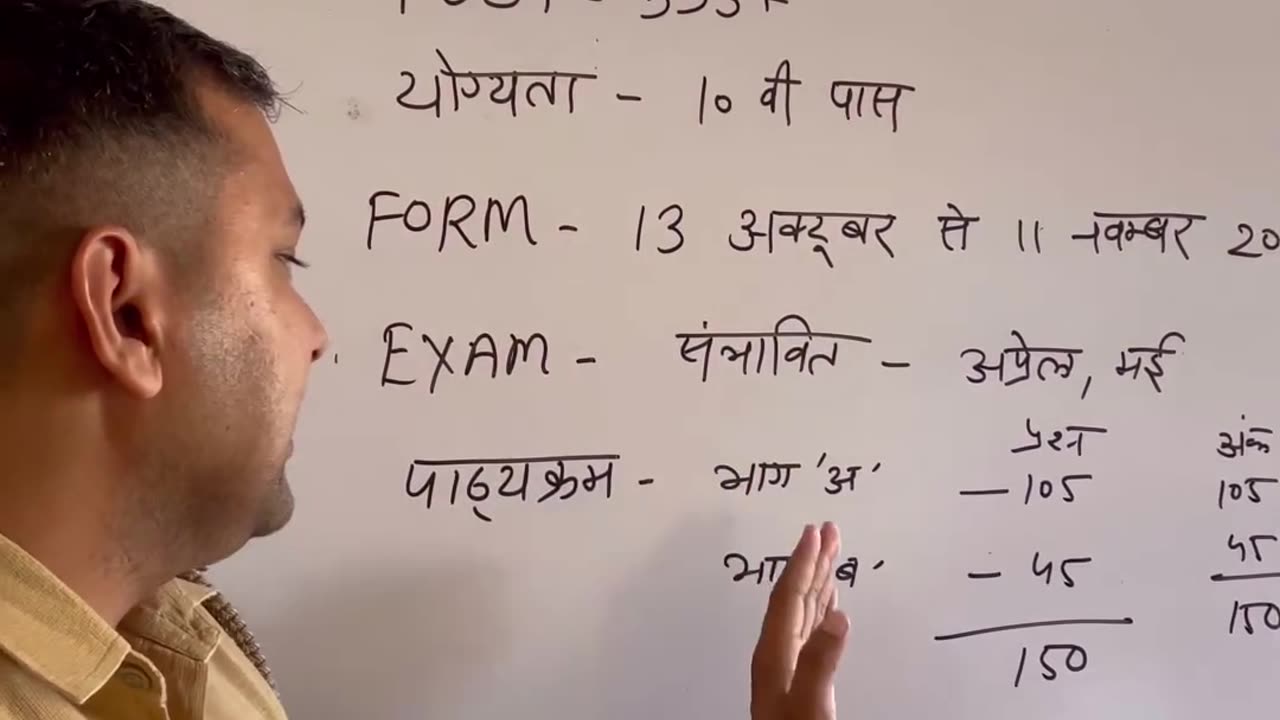 योग्यता - 10 वी पास
FORM - 13 अक्टूबर से 11 नवम्बर 20
EXAM - संभावित - अप्रेल, मई
प्रश्न अंक
पाठ्यक्रम - भाग 'अ' - 105 105
ब' - 45 45
150 150